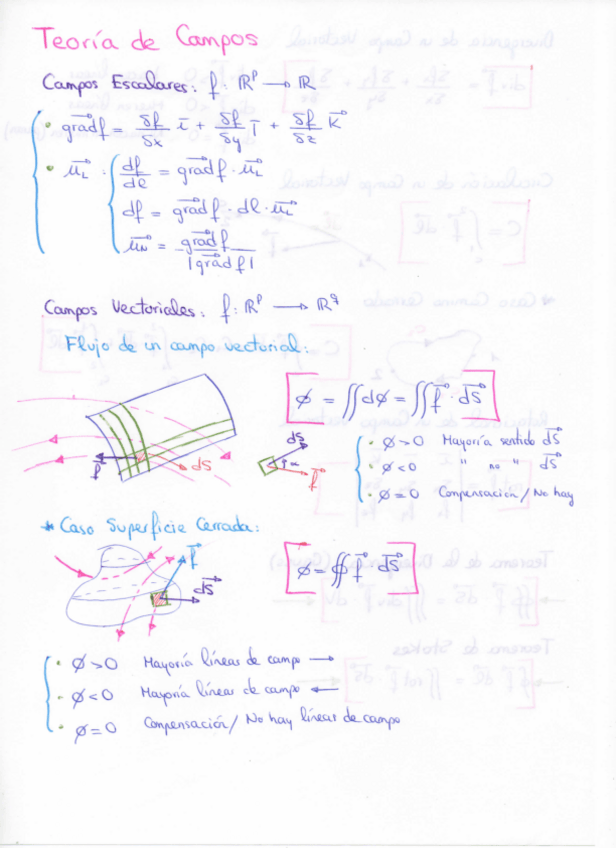 Teoría de Campos
Campos Escalares: f: ℝᵖ → ℝ
• grad⃗ f = δf/δx i⃗ + δf/δy j⃗ + δf/δz k⃗
• u⃗_L : df/dl = grad⃗ f · u⃗_L
df = grad⃗ f · dl · u⃗_L
u⃗_N = grad⃗ f / |grad⃗ f|
Campos Vectoriales: f: ℝᵖ → ℝ^q
Flujo de un campo vectorial:
ø = ∬dø = ∬f⃗ · dS⃗
f⃗ dS⃗
dS⃗ α f⃗
• ø>0 Mayoría sentido dS⃗
• ø<0 " no " dS⃗
• ø=0 Compensación/ No hay
* Caso Superficie Cerrada:
f⃗ dS⃗
ø = ∯ f⃗ · dS⃗
• ø>0 Mayoría líneas de campo →
• ø<0 Mayoría líneas de campo ←
• ø=0 Compensación/ No hay líneas de campo